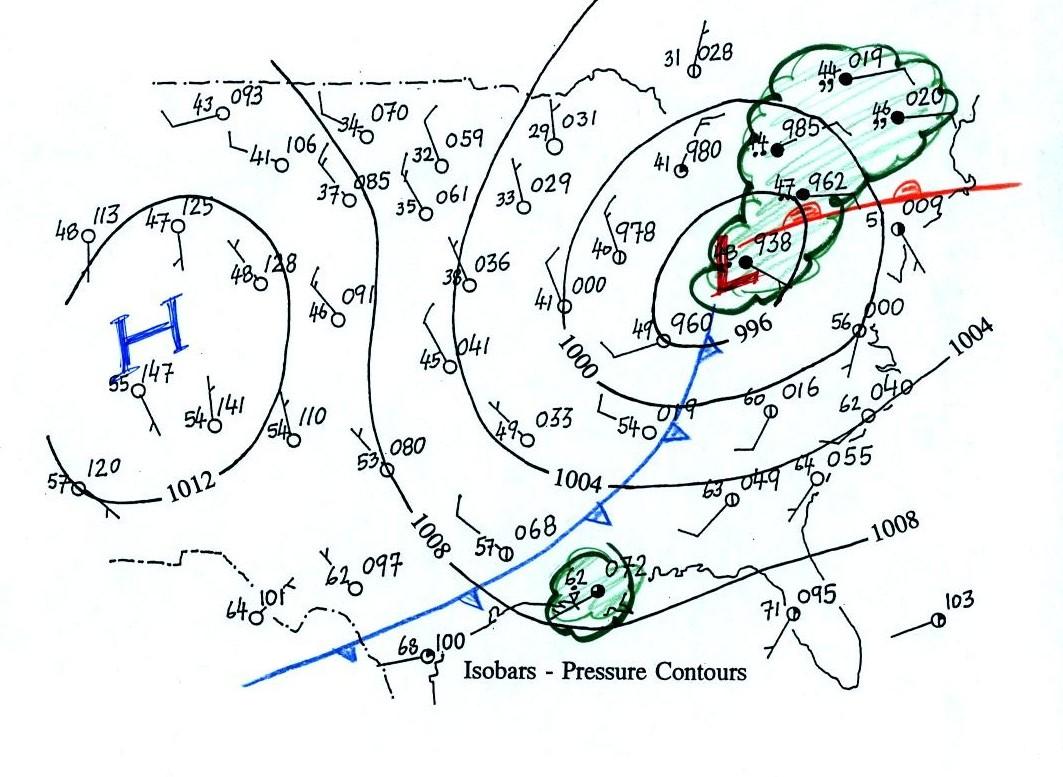 31 028
44 019
46 020
43 093
34 070
29 031
32 059
985
41 980
41 106
37 085
35 061
33 029
47 962
48 113
47 125
40 978
5 009
938
L
48 128
38 036
46 091
41 000
H
45 041
49 960
996
56 000
1000
1004
55 147
54 141
54 110
60 016
62 040
54 019
49 033
53 080
64 055
57 120
1012
1004
63 049
1008
57 068
1008
62 097
62 072
64 101
71 095
103
68 100
Isobars - Pressure Contours